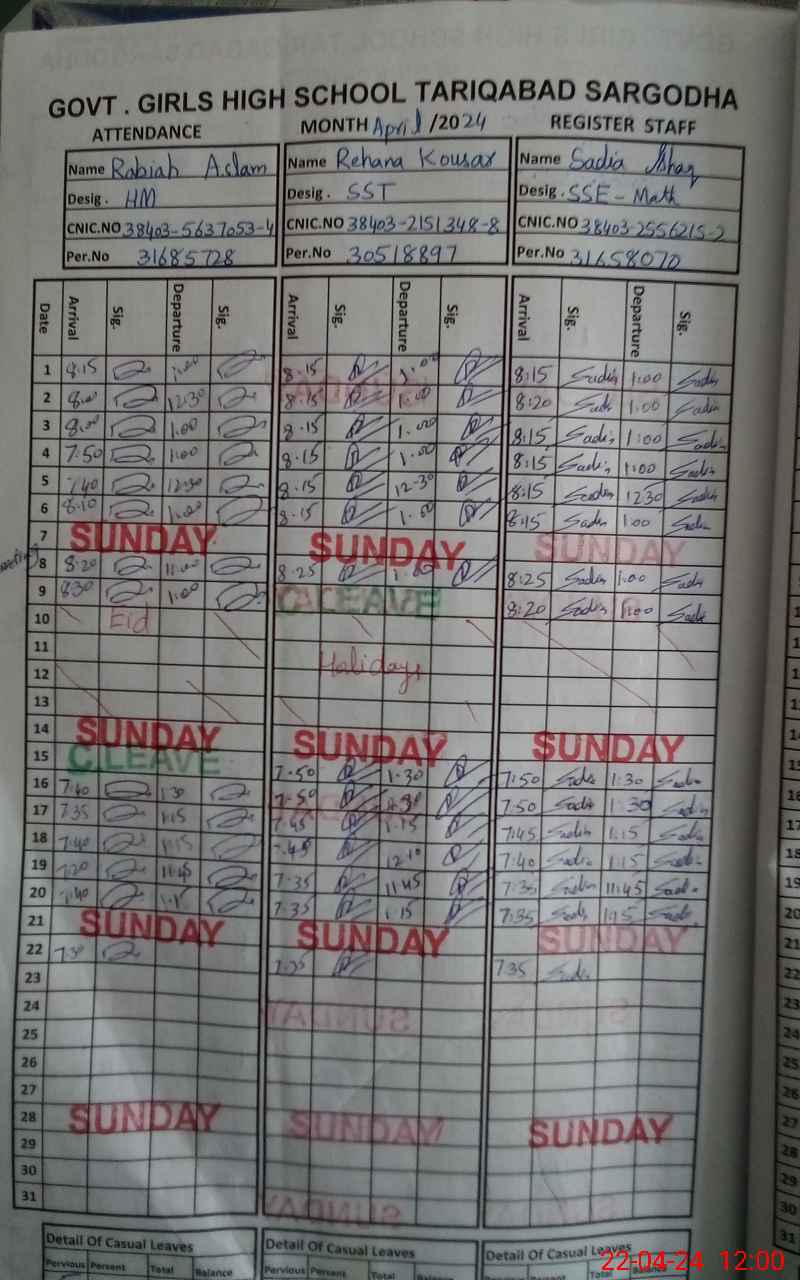 GOVT . GIRLS HIGH SCHOOL TARIQABAD SARGODHA
ATTENDANCE MONTH April /2024 REGISTER STAFF
Name Rabiah Aslam Name Rehana Kousar Name Sadia
Desig . HM Desig . SST Desig . SSE-Math
CNIC.NO 38403-5637053-4 CNIC.NO 38403-2151348-8 CNIC.NO 38403-2556215-2
Per.No 31685728 Per.No 30518897 Per.No 31658070
Date Arrival Sig. Departure Sig. Arrival Sig. Departure Sig. Arrival Sig. Departure Sig.
1 8:15 1:00 8.15 1.00 8:15 Sadia 1:00 Sadia
2 8:00 12:30 8.15 1.00 8:20 Sadia 1:00 Sadia
3 8:00 1:00 8.15 1.00 8:15 Sadia 1:00 Sadia
4 7:50 1:00 8.15 1.00 8:15 Sadia 1:00 Sadia
5 7:40 12:30 8.15 12-30 8:15 Sadia 1230 Sadia
6 8:10 1:00 8.15 1.00 8:15 Sadia 1:00 Sadia
7 SUNDAY SUNDAY SUNDAY
8 8:20 11:00 8.25 1.00 8:25 Sadia 1:00 Sadia
9 830 1:00 C.LEAVE 8:20 Sadia 1:00 Sadia
10 Eid
11
12 Halidays
13
14 SUNDAY SUNDAY SUNDAY
15 C.LEAVE 7.50 1.30 7:50 Sadia 1:30 Sadia
16 7:40 1:30 7.50 1.30 7:50 Sadia 1:30 Sadia
17 7:35 1:15 7.45 1.15 7:45 Sadia 1:15 Sadia
18 7:40 1:15 7.45 12.10 7:40 Sadia 1:15 Sadia
19 7:20 11:45 7.35 11.45 7:35 Sadia 11:45 Sadia
20 7:40 1:15 7.35 1.15 7:35 Sadia 1:15 Sadia
21 SUNDAY SUNDAY SUNDAY
22 7:30 7.35 7:35 Sadia
23
24
25
26
27
28 SUNDAY SUNDAY SUNDAY
29
30
31
Detail Of Casual Leaves Detail Of Casual Leaves Detail Of Casual Leaves
Pervious Persent Total Balance Pervious Persent Total Balance
22-04-24 12:00